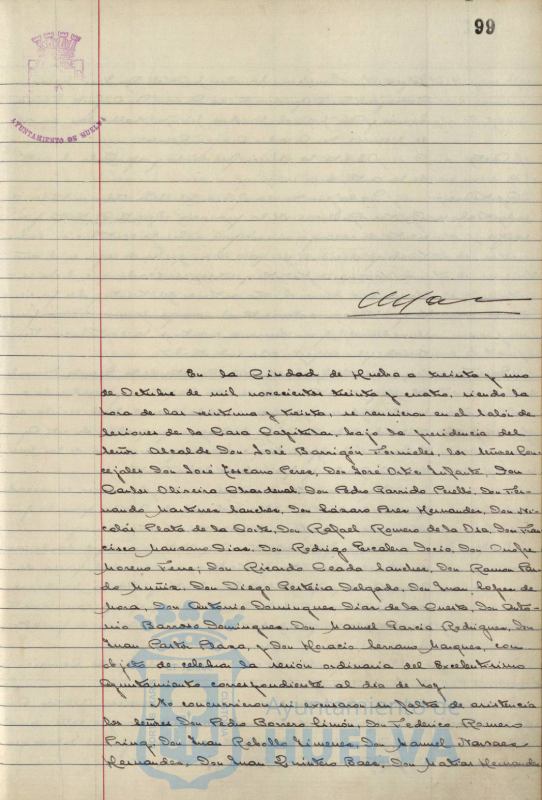 99
AYUNTAMIENTO DE HUELVA
En la Ciudad de Huelva a treinta y uno
de Octubre de mil novecientos treinta y cuatro, siendo la
hora de las veintiuna y treinta, se reunieron en el Salón de
Sesiones de la Casa Capitular, bajo la presidencia del
Señor Alcalde Don José Barrigón Fornieles, los Señores Con-
cejales Don José Toscano Perez, Don José Ortiz Infante, Don
Carlos Oliveira Chardenal, Don Pedro Garrido Perelló, Don Fer-
nando Martinez Sanchez, Don Lázaro Perez Hernandez, Don Ni-
colás Plata de la Corte, Don Rafael Romero de la Osa, Don Fran-
cisco Manzano Diaz, Don Rodrigo Escalera Socio, Don Onofre
Moreno Don Ricardo Sanchez, Don Ramon Par-
do Muñiz, Don Diego Delgado, Don Juan Lopez de
Mora, Don Antonio Dominguez Diaz de la Cuesta, Don Anto-
nio Barroso Dominguez, Don Manuel Garcia Rodriguez, Don
Juan Pastor Plaza, y Don Horacio Serrano Marquez, con
objeto de celebrar la sesión ordinaria del Excelentísimo
Ayuntamiento correspondiente al día de hoy.
No concurrieron ni excusaron su falta de asistencia
los señores Don Pedro Borrero Limón, Don Federico Romero
Don Juan Rebollo Jimenez, Don Manuel Narvaez
Hernandez, Don Juan Quintero Baez, Don Matias Hernandez
Ayuntamiento de
HUELVA